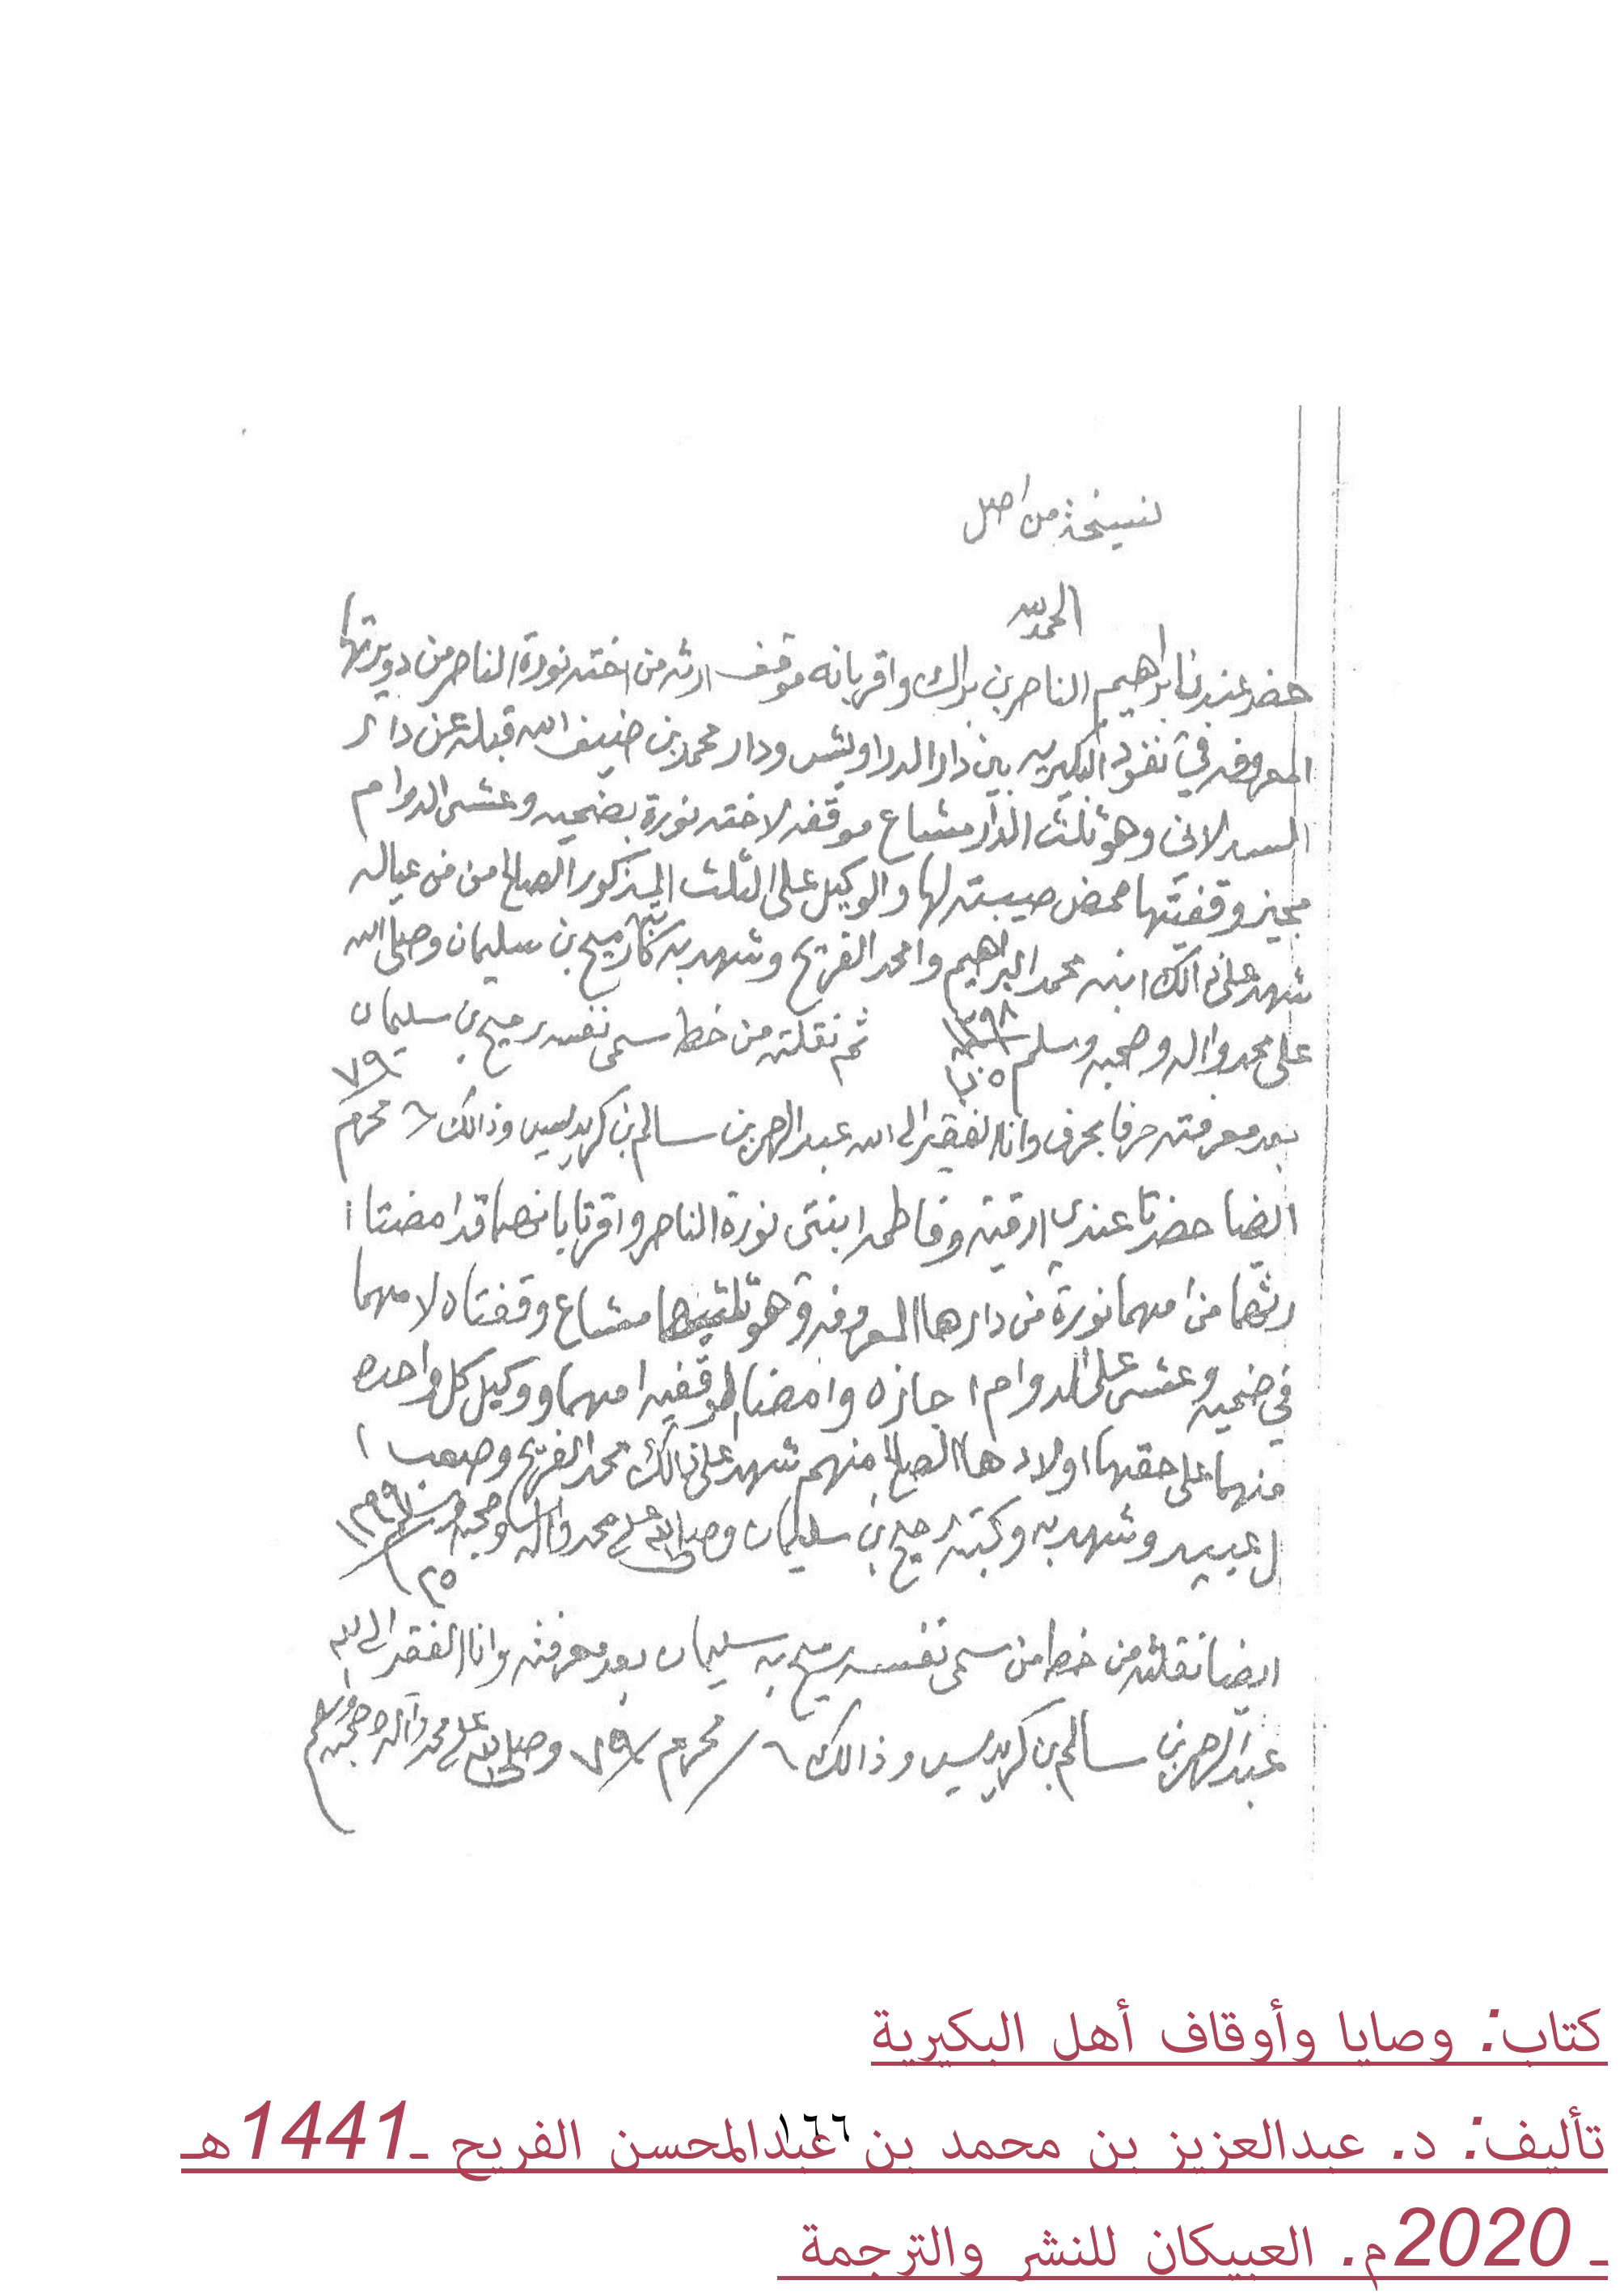 نسخة من اصل
الحمد لله
حضر عندنا ابراهيم الناصر بن براك واقر بانه موقف ارثه من اخته نورة الناصر من دويرتها
المعروفه في نفود البكيريه بين دار الدراويش ودار محمد بن ضيف الله قبله عن دار
السدلاني وهو ثلث الدار مشاع موقفه لاخته نورة بضحيه وعشى الدوام
مجيز وقفيتها محض صيبته لها والوكيل على الثلث المذكور الصالح من من عياله
شهد على ذالك ابنه محمد البراهيم وامحمد الفريح وشهد به كاتبه رميح بن سليمان وصلى الله
على محمد واله وصحبه وسلم ١٣٩٨ ثم نقلته من خط سمى نفسه رميح بن سليمان
بعد معرفته حرفا بحرف وانا الفقير الى الله عبدالرحمن بن سالم بن كريديس وذالك ٦ محرم ٧٩
ايضا حضرتا عندي ارقيه وفاطمه ابنتى نورة الناصر واقرتا بانهما قد امضتا ا
رثهما من امهما نورة من دارها المعروفه وهو ثلثيهما مشاع وقفتاه لامهما
في ضحيه وعشى على الدوام اجازه وامضا لوقفية امهما ووكيل كل واحده
منهما على حقها اولادها الصالح منهم شهد على ذالك محمد الفريح وصعب ا
ل عبيد وشهد به وكتبه رميح بن سليمان وصلى الله على محمد واله وصحبه وسلم
ايضا نقلته من خط من سمى نفسه رميح بن سليمان بعد معرفته وانا الفقير الى الله
عبدالرحمن بن سالم بن كريديس وذالك ٦ / محرم / ٧٩ وصلى الله على محمد واله وصحبه وسلم
كتاب: وصايا وأوقاف أهل البكيرية
١٦٦
تأليف: د. عبدالعزيز بن محمد بن عبدالمحسن الفريح ـ1441هـ
ـ 2020م. العبيكان للنشر والترجمة